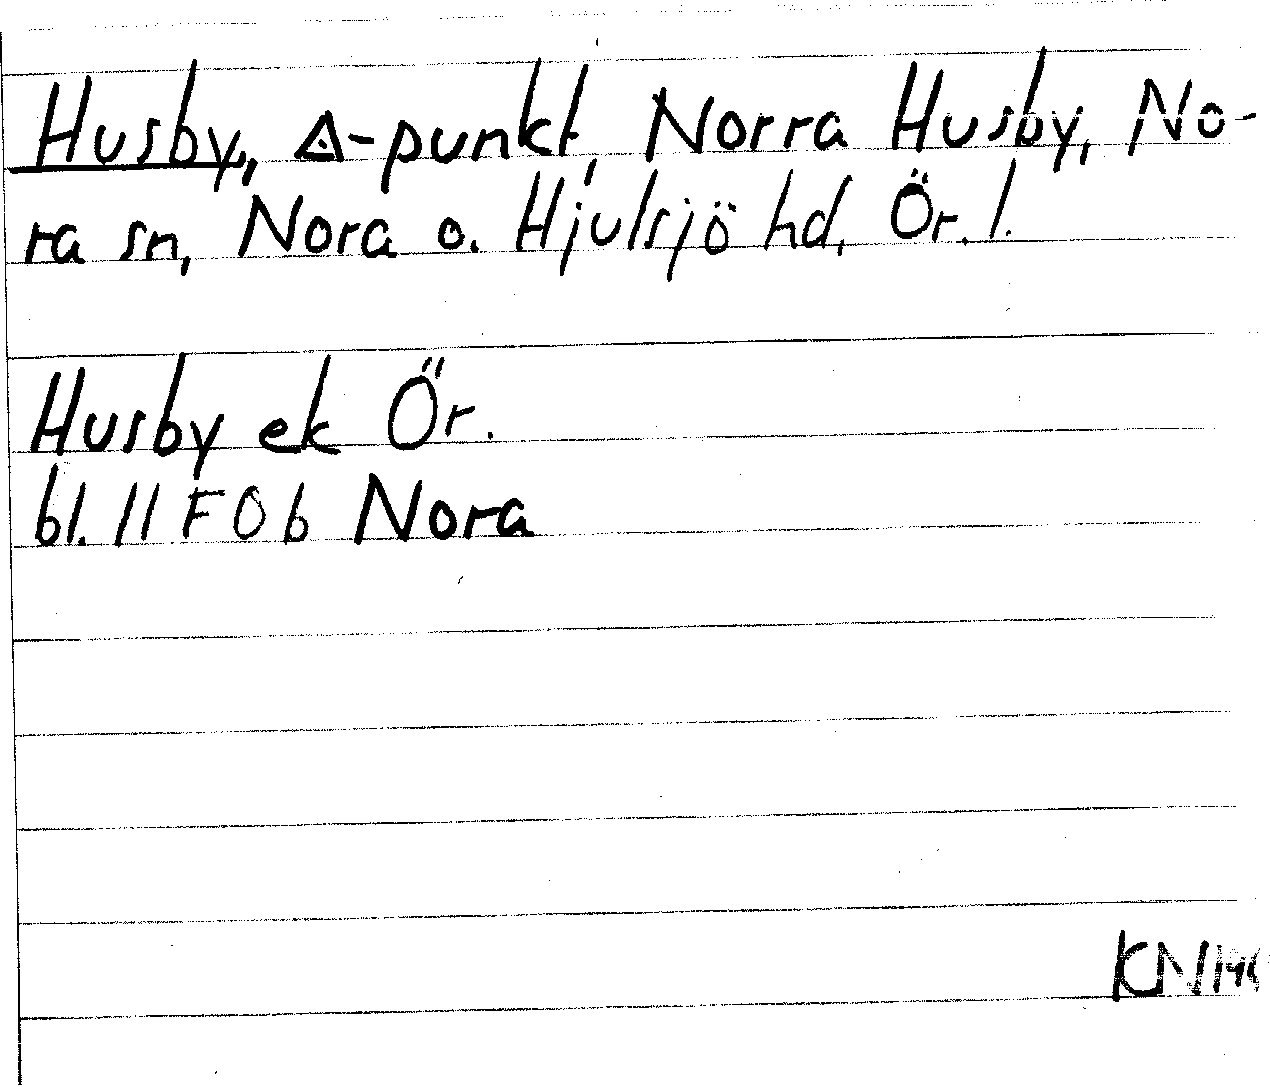 Husby, △-punkt, Norra Husby, No-
ra sn, Nora o. Hjulsjö hd, Ör. l.
Husby ek Ör.
bl. 11 F 0 b Nora